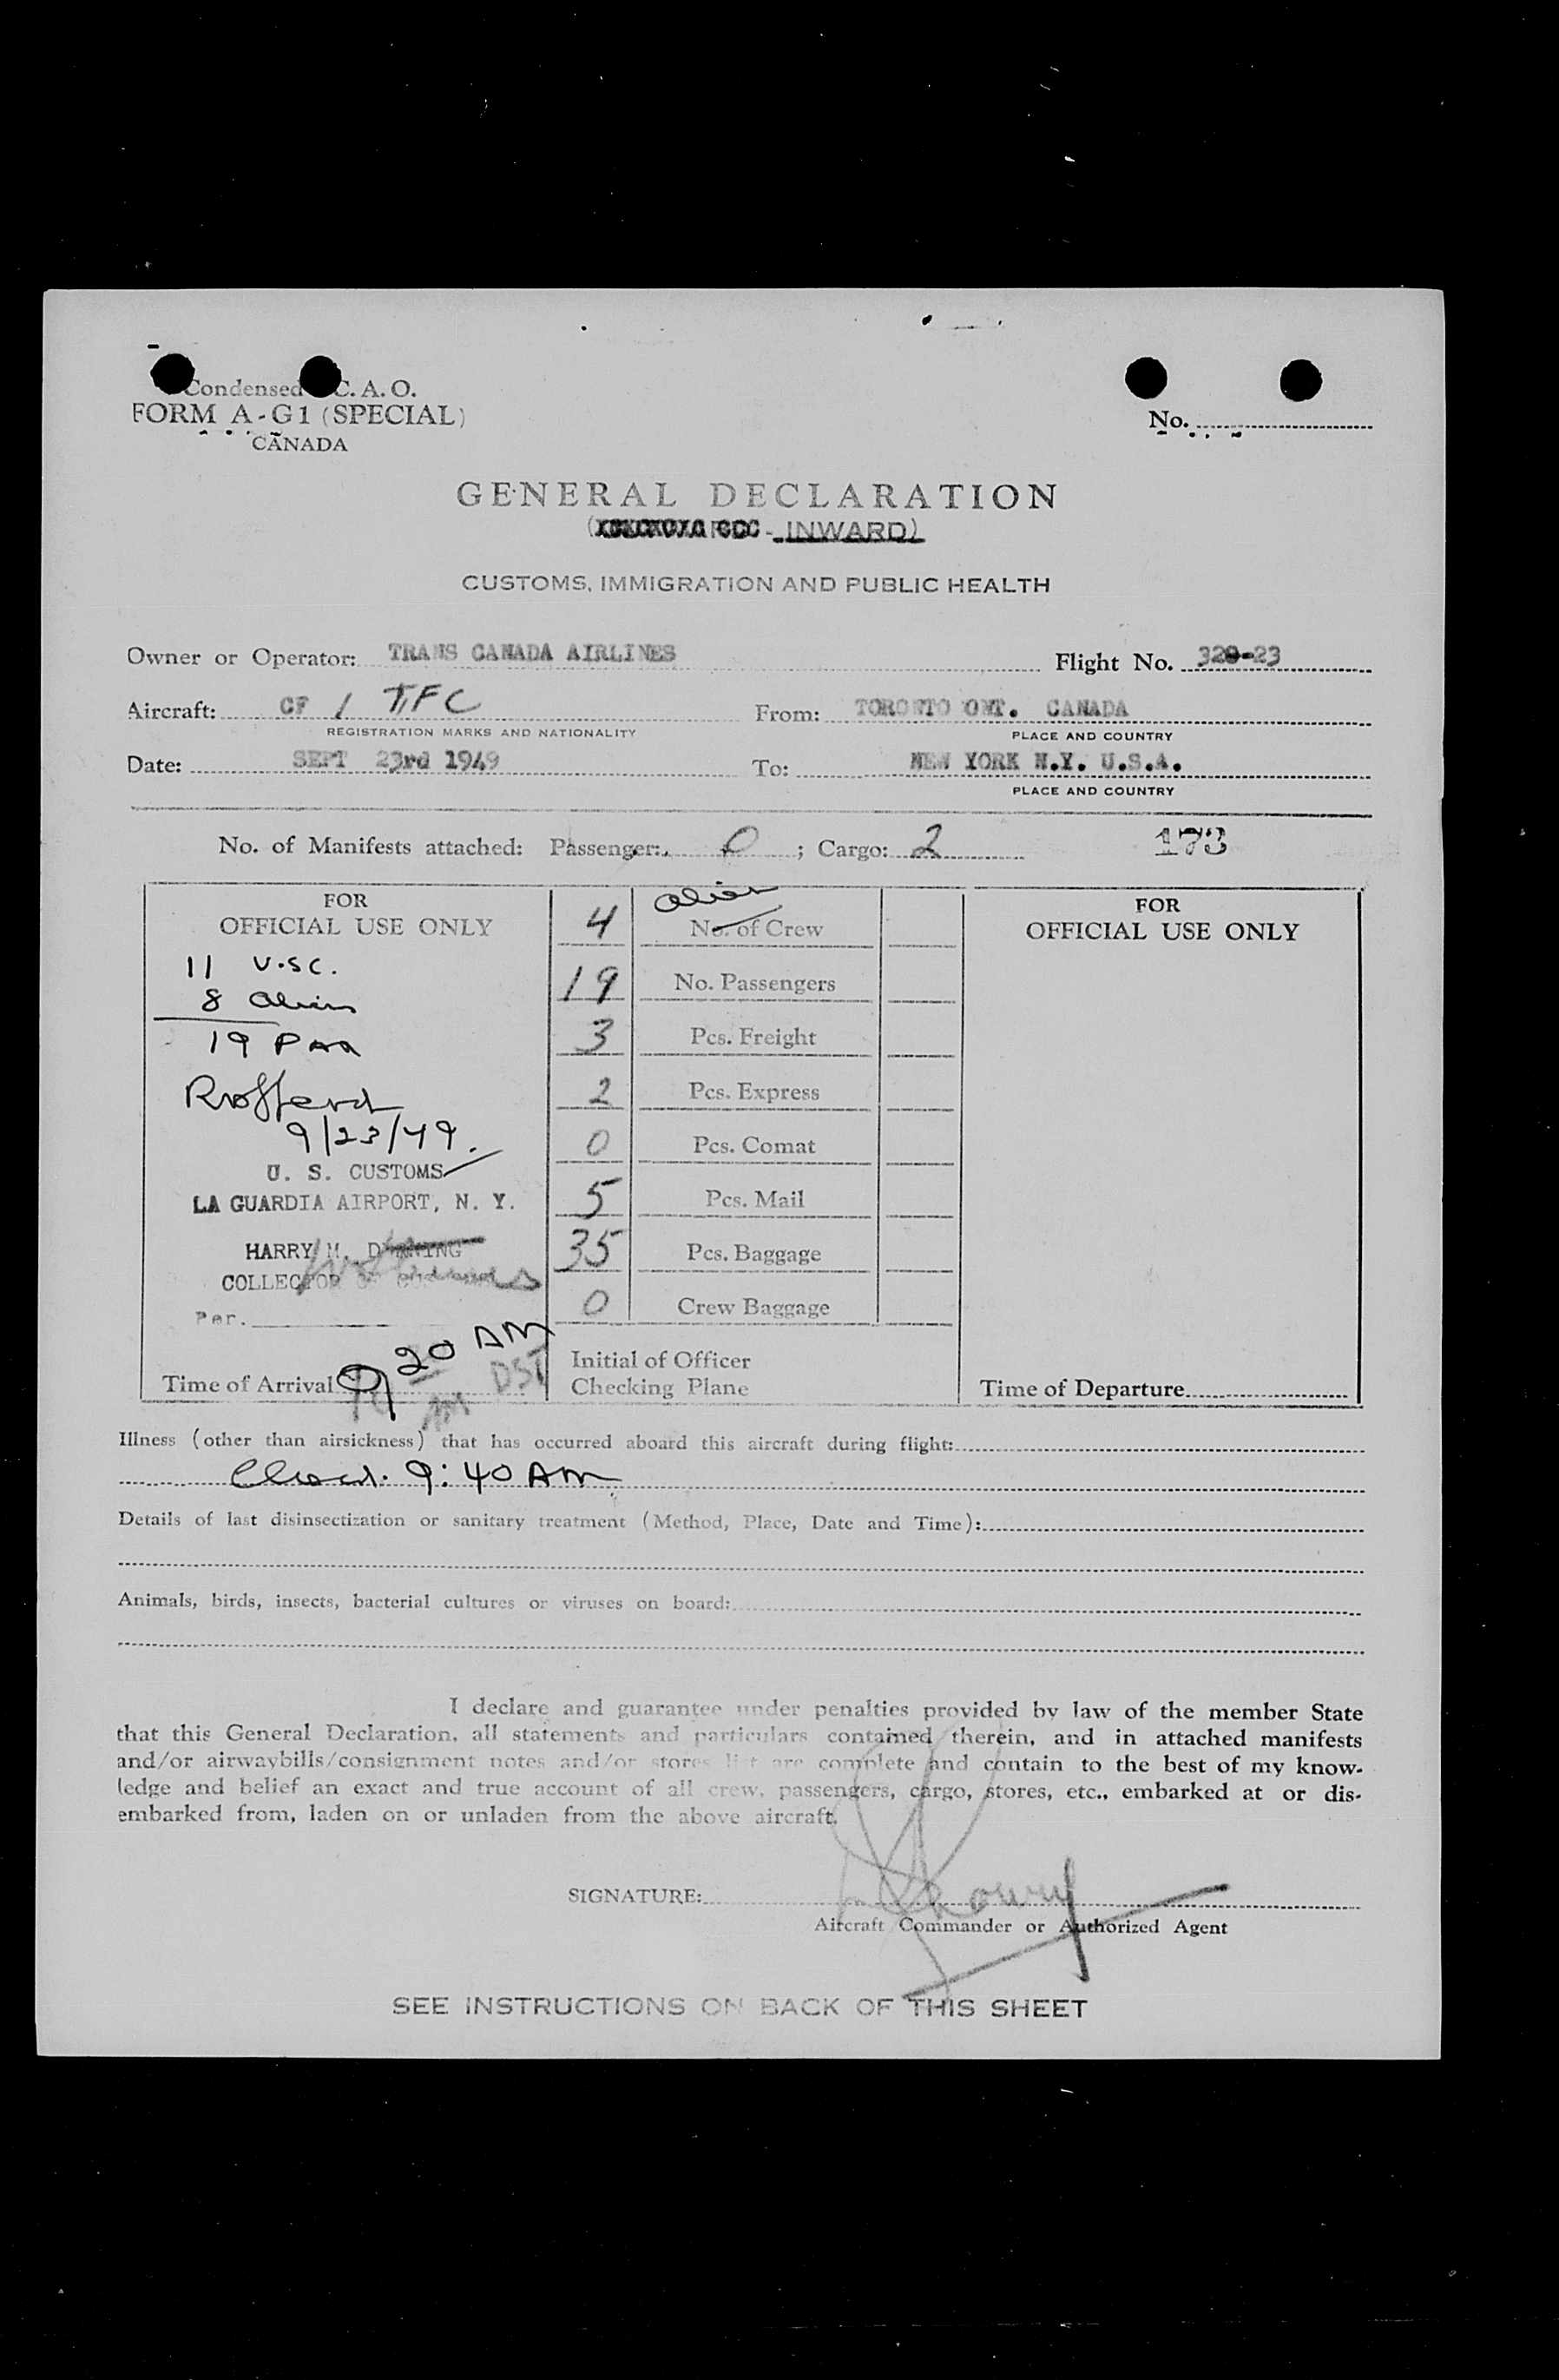 Condensed C. A. O.
FORM A-G1 (SPECIAL)
CANADA
No.
GENERAL DECLARATION
- INWARD)
CUSTOMS, IMMIGRATION AND PUBLIC HEALTH
Owner or Operator: TRANS CANADA AIRLINES Flight No. 320-23
Aircraft: CF / TFC From: TORONTO ONT. CANADA
REGISTRATION MARKS AND NATIONALITY PLACE AND COUNTRY
Date: SEPT 23rd 1949 To: NEW YORK N.Y. U.S.A.
PLACE AND COUNTRY
No. of Manifests attached: Passenger: 0 ; Cargo: 2 173
FOR
OFFICIAL USE ONLY
11 U.S.C.
8 Alien
19 Pax
9/23/49.
U. S. CUSTOMS
LA GUARDIA AIRPORT, N. Y.
HARRY M. DURNING
COLLECTOR OF CUSTOMS
Per.
Time of Arrival 9 20 AM DST
4 alien No. of Crew
19 No. Passengers
3 Pcs. Freight
2 Pcs. Express
0 Pcs. Comat
5 Pcs. Mail
35 Pcs. Baggage
0 Crew Baggage
Initial of Officer
Checking Plane
FOR
OFFICIAL USE ONLY
Time of Departure
Illness (other than airsickness) that has occurred aboard this aircraft during flight:
9:40 AM
Details of last disinsectization or sanitary treatment (Method, Place, Date and Time):
Animals, birds, insects, bacterial cultures or viruses on board:
I declare and guarantee under penalties provided by law of the member State
that this General Declaration, all statements and particulars contained therein, and in attached manifests
and/or airwaybills/consignment notes and/or stores list are complete and contain to the best of my know-
ledge and belief an exact and true account of all crew, passengers, cargo, stores, etc., embarked at or dis-
embarked from, laden on or unladen from the above aircraft.
SIGNATURE:
Aircraft Commander or Authorized Agent
SEE INSTRUCTIONS ON BACK OF THIS SHEET